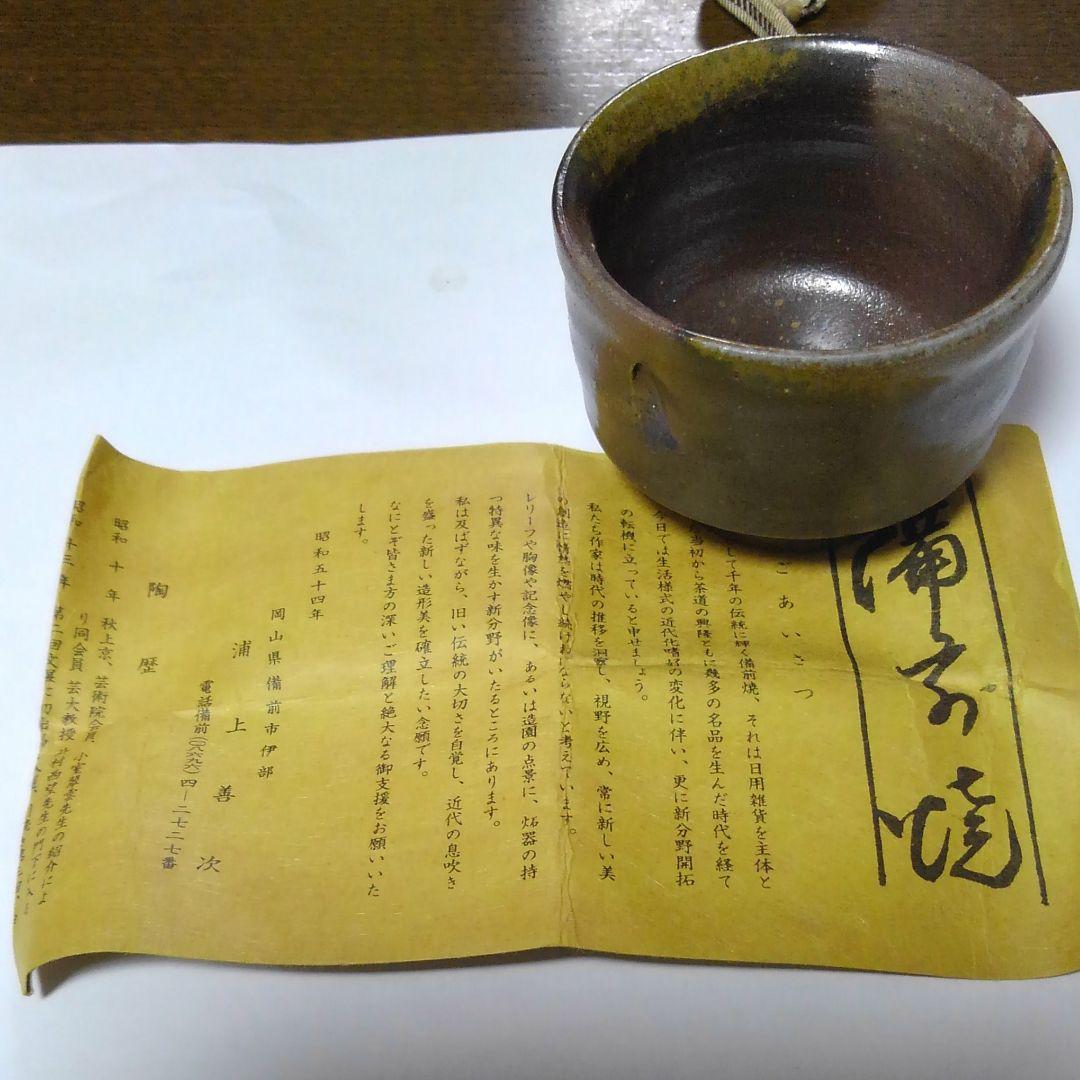 備前焼
ごあいさつ
して千年の伝統に輝く備前焼、それは日用雑貨を主体と
当初から茶道の興隆とともに幾多の名品を生んだ時代を経て
今日では生活様式の近代化嗜好の変化に伴い、更に新分野開拓
の転機に立っていると申せましょう。
私たち作家は時代の推移を洞察し、視野を広め、常に新しい美
の創造に情熱を燃やし続けねばならないと考えています。
レリーフや胸像や記念像に、あるいは造園の点景に、炻器の持
つ特異な味を生かす新分野がいたるところにあります。
私は及ばずながら、旧い伝統の大切さを自覚し、近代の息吹き
を盛った新しい造形美を確立したい念願です。
なにとぞ皆さま方の深いご理解と絶大なる御支援をお願いいた
します。
昭和五十四年
岡山県備前市伊部
浦上善次
電話備前(〇八六九六)四―二七二七番
陶歴
昭和十年 秋上京、芸術院会員 先生の紹介によ
り同会員 芸大教授 北村西望先生の門下に入る
昭和十三年 第二回文展に初